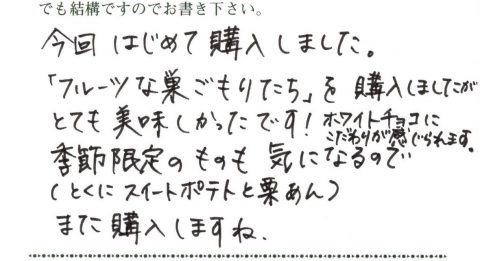 でも結構ですのでお書き下さい。
今回 はじめて 購入 しました。
「フルーツな巣ごもりたち」を 購入しましたが
とても 美味しかったです! ホワイトチョコに
こだわりが感じられます。
季節限定のものも 気になるので
(とくに スイートポテトと栗あん)
また 購入しますね、